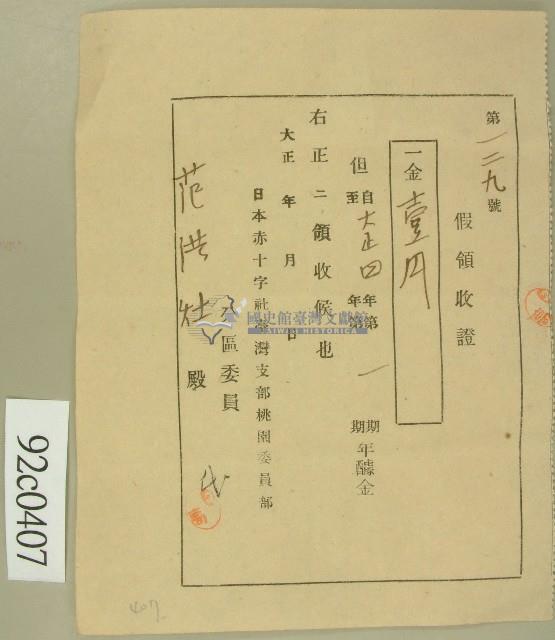 第一二九號
假領收證
一金壹円
但自大正四年第一期年醵金
至年第期
右正ニ領收候也
大正年月日
日本赤十字社臺灣支部桃園委員部
區委員
范洪灶殿
代
國史館臺灣文獻館
TAIWAN HISTORICA
92c0407
407